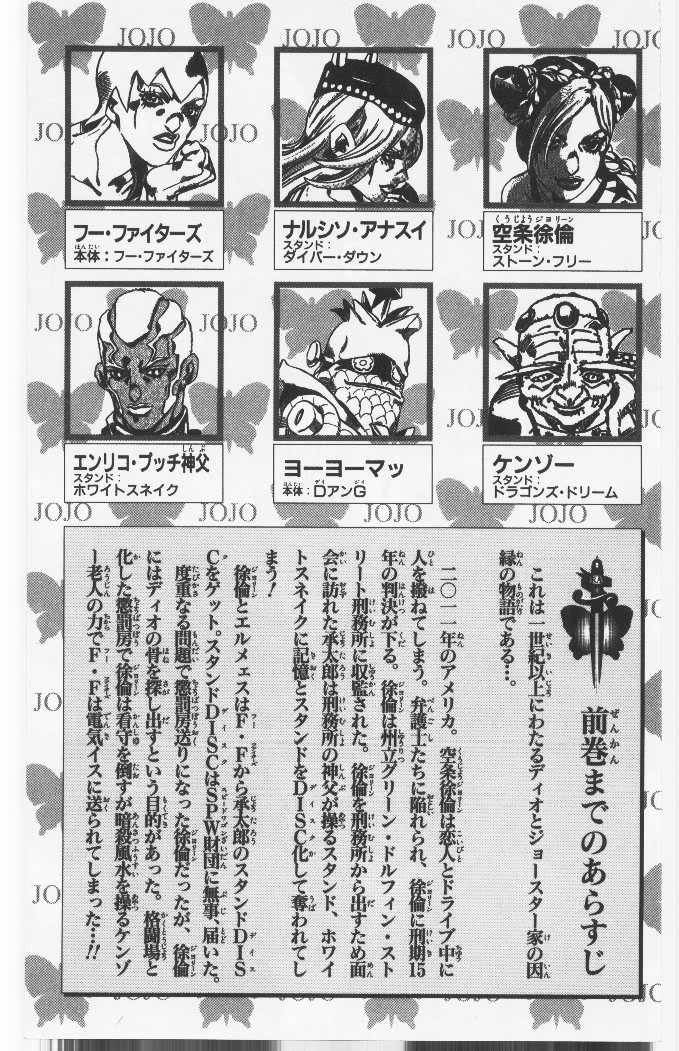 JOJO JOJO JOJO JOJO
空条徐倫
スタンド：
ストーン・フリー
ナルシソ・アナスイ
スタンド：
ダイバー・ダウン
フー・ファイターズ
本体：フー・ファイターズ
ケンゾー
スタンド：
ドラゴンズ・ドリーム
ヨーヨーマッ
本体：DアンG
エンリコ・プッチ神父
スタンド：
ホワイトスネイク
前巻までのあらすじ
これは一世紀以上にわたるディオとジョースター家の因
縁の物語である…。
二〇一一年のアメリカ。空条徐倫は恋人とドライブ中に
人を撥ねてしまう。弁護士たちに陥れられ、徐倫に刑期15
年の判決が下る。徐倫は州立グリーン・ドルフィン・スト
リート刑務所に収監された。徐倫を刑務所から出すため面
会に訪れた承太郎は刑務所の神父が操るスタンド、ホワイ
トスネイクに記憶とスタンドをDISC化して奪われてし
まう！
徐倫とエルメェスはF・Fから承太郎のスタンドDIS
Cをゲット。スタンドDISCはSPW財団に無事、届いた。
度重なる問題で懲罰房送りになった徐倫だったが、徐倫
にはディオの骨を探し出すという目的があった。格闘場と
化した懲罰房で徐倫は看守を倒すが暗殺風水を操るケンゾ
ー老人の力でF・Fは電気イスに送られてしまった…!!